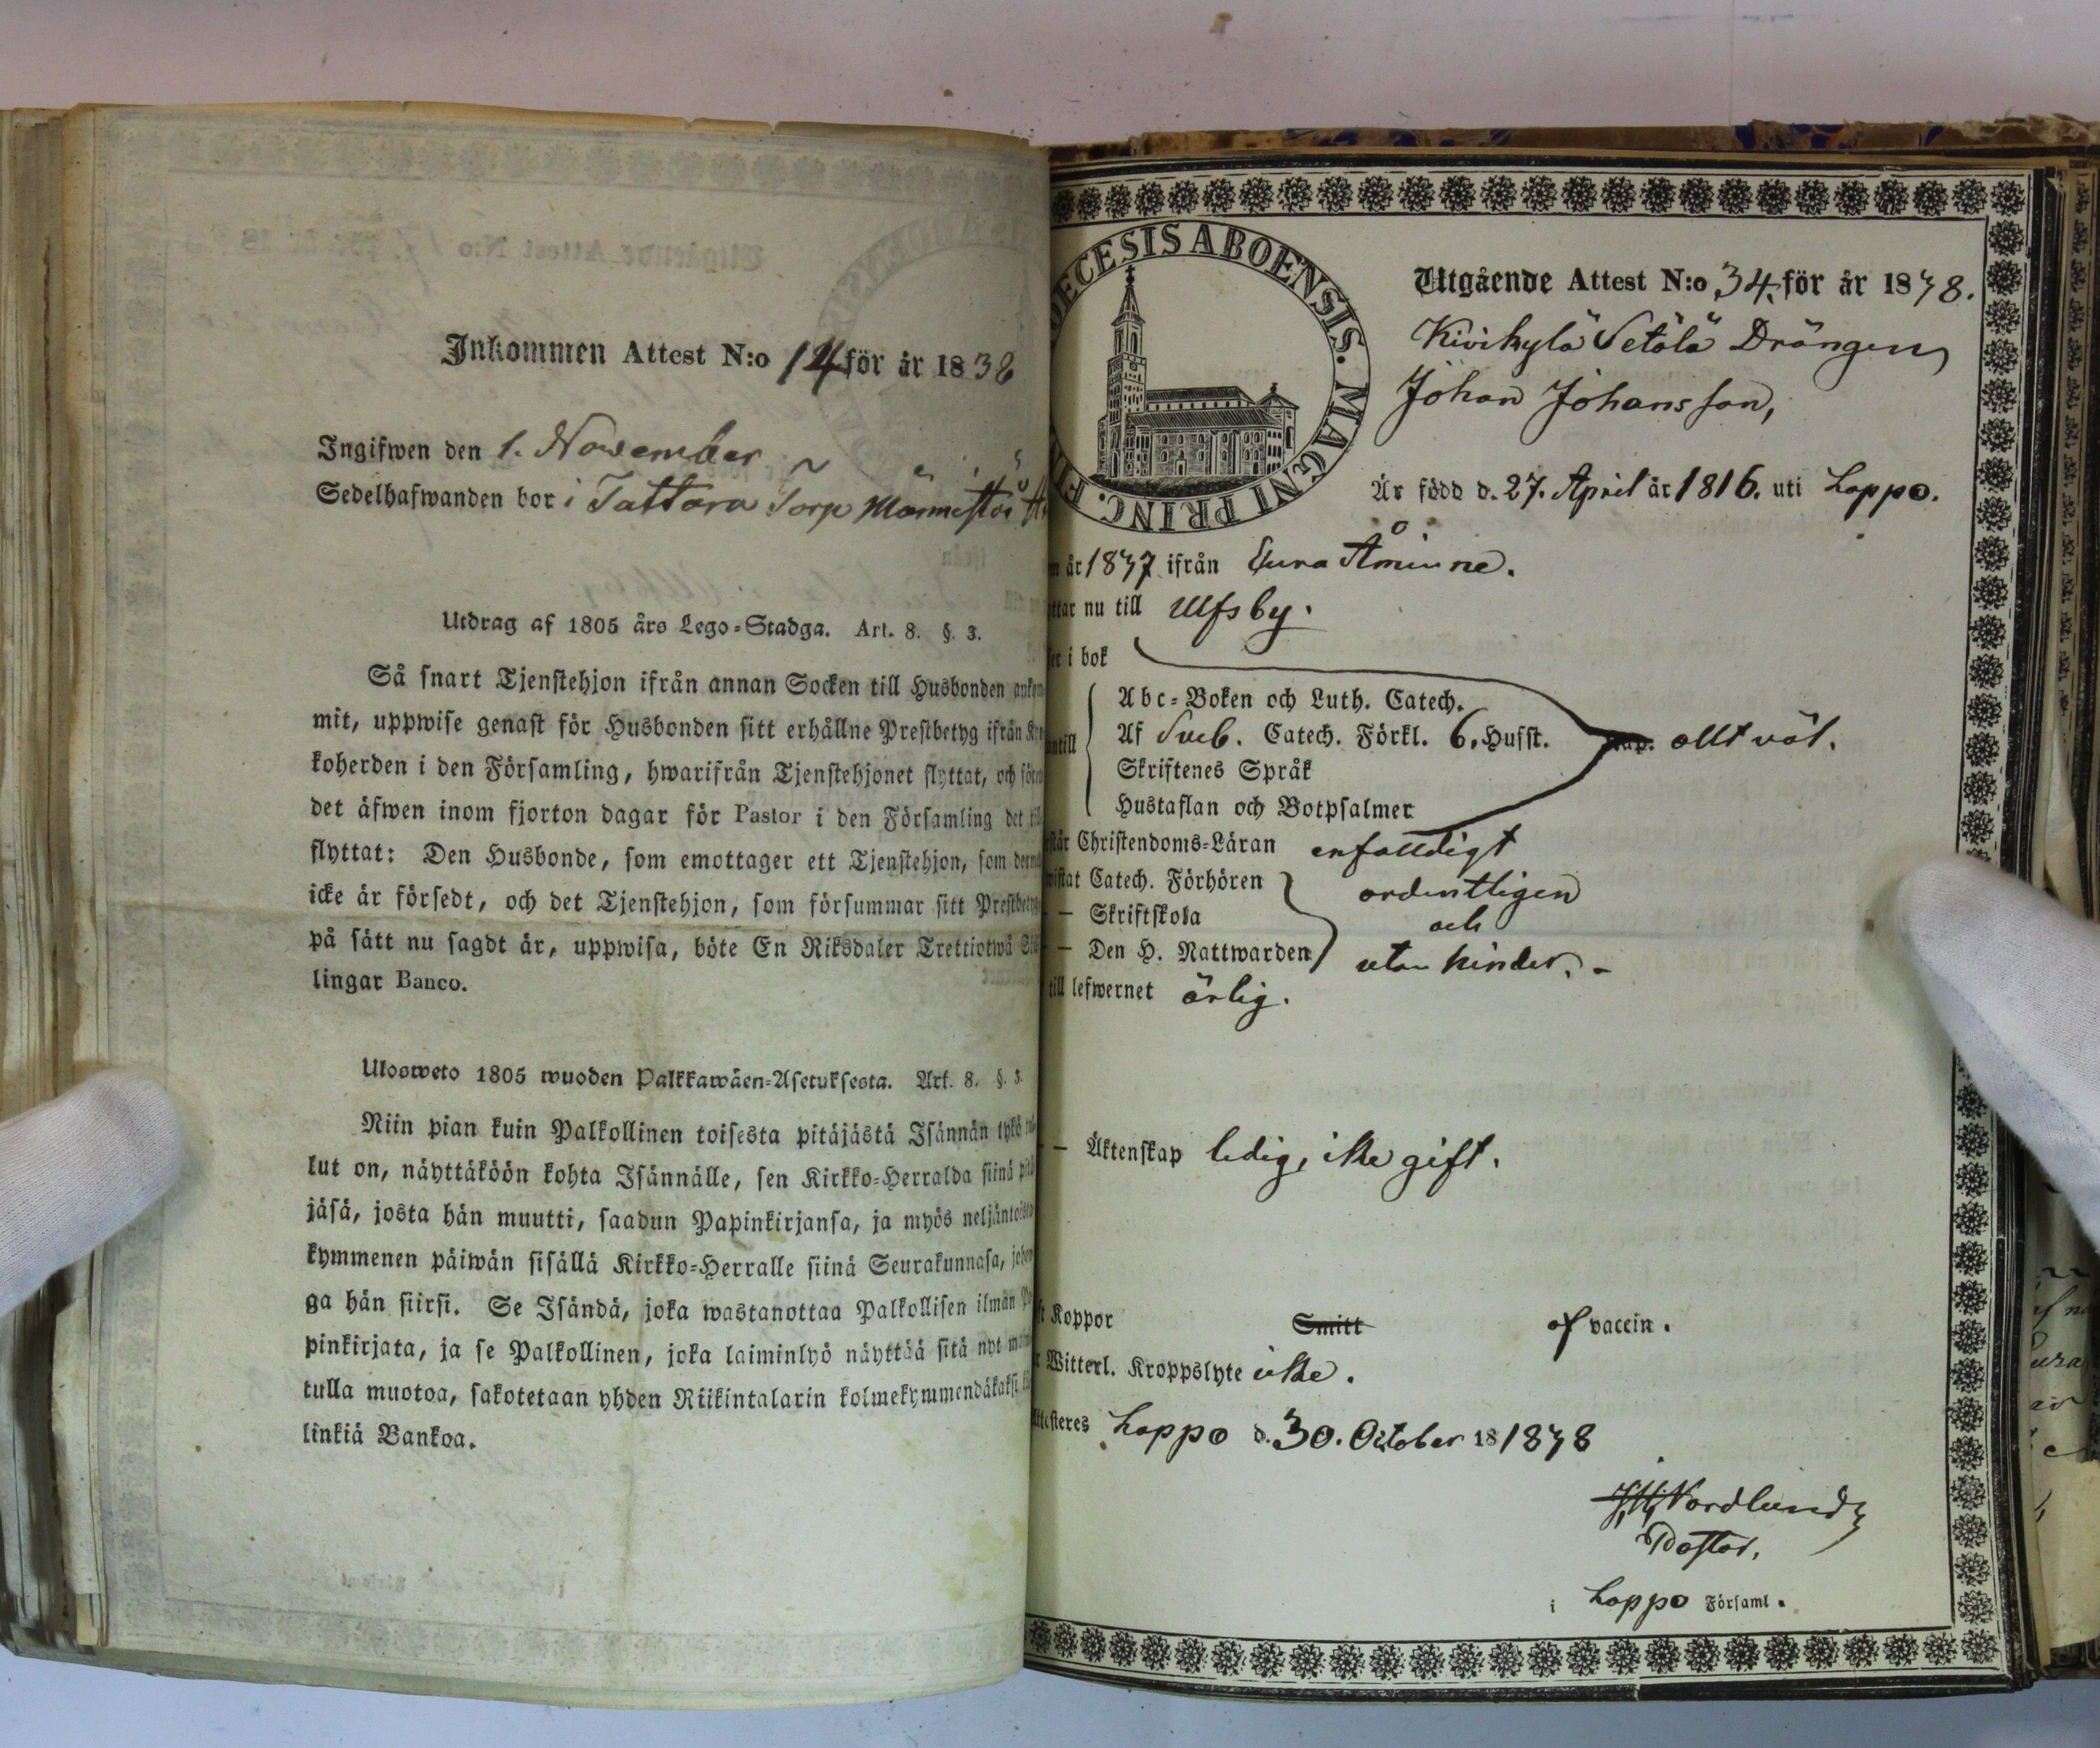 Inkommen Attest N:o 14 för år 1838
Ingifwen den 1. November
Sedelhafwanden bor i Tattara Torp Männistö
Utdrag af 1805 års Lego-Stadga. Art. 8. §. 3.
Så snart Tjenstehjon ifrån annan Socken till Husbonden
mit, uppwise genast för Husbonden sitt erhållne Prestbetyg ifrån
koherden i den Församling, hwarifrån Tjenstehjonet flyttat, och
det äfwen inom fjorton dagar för Pastor i den Församling det
flyttat: Den Husbonde, som emottager ett Tjenstehjon, som
icke är försedt, och det Tjenstehjon, som försummar sitt
på sätt nu sagdt är, uppwisa, böte En Riksdaler Trettiotwå
lingar Banco.
Ulosweto 1805 wuoden Palkkawäen-Asetuksesta. Art. 8. §. 3.
Niin pian kuin Palkollinen toisesta pitäjästä Isännän tykö
lut on, näyttäköön kohta Isännälle, sen Kirkko-Herralda siinä
jäsä, josta hän muutti, saadun Papinkirjansa, ja myös
kymmenen päiwän sisällä Kirkko-Herralle siinä Seurakunnasa,
ga hän siirsi. Se Isändä, joka wastanottaa Palkollisen ilman
pinkirjata, ja se Palkollinen, joka laiminlyö näyttää sitä nyt
tulla muotoa, sakotetaan yhden Riikintalarin kolmekymmendäkaksi
linkiä Bankoa.
DECESIS ABOENSIS. MAGNI PRINC. F
Utgående Attest N:o 34. för år 1838.
Kivikylä Setälä Drängen
Johan Johansson,
Är född d. 27. April år 1816. uti Lappo.
år 1837 ifrån Eura Åminne.
nu till Ulfsby.
i bok
Abc-Boken och Luth. Catech.
Af Sveb. Catech. Förkl. 6, Husst. Kap. allt väl.
Skriftenes Språk
Hustaflan och Botpsalmer
Christendoms-Läran enfalldigt
Catech. Förhören ordentligen
— Skriftskola och
— Den H. Nattwarden utan hinder. -
till lefwernet ärlig.
— Äktenskap ledig, ikke gift.
Koppor Smitt af vaccin.
Witterl. Kroppslyte ikke.
Lappo d. 30. October 18 1838
Nordlund
Pastor,
i Lappo Församl.